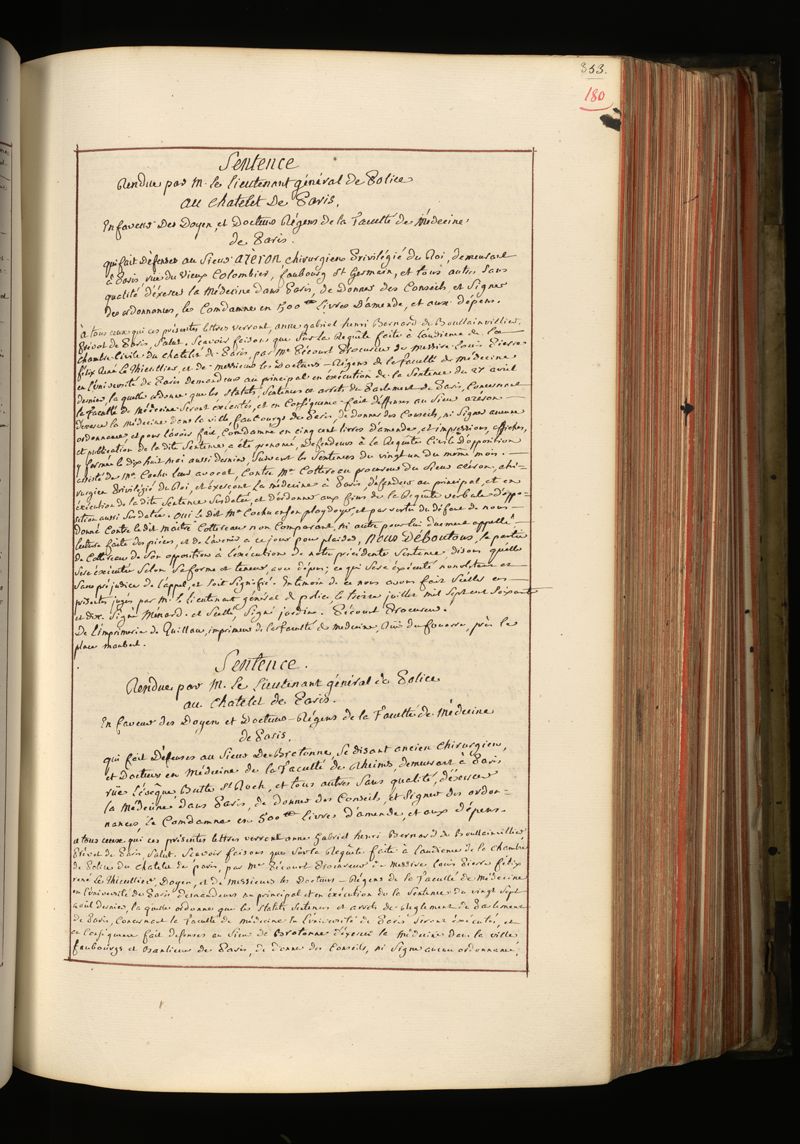 353.
180
Sentence
Rendue par M. le Lieutenant général de Police
au Chatelet De Paris.
En faveur Des Doyen et Docteurs Régens de la Faculté de Médecine
de Paris.
qui fait Défenses au Sieur azeron chirurgien Privilégié du Roi, demeurant
à Paris rue du vieux Colombier, faubourg St Germain, et tous autres sans
qualité d'éxercer la Médecine dans Paris, de Donner des Conseils et Signer
des ordonnances, les Comdamne en 500 livres D'amende, et aux dépens.
à tous ceux qui ces présentes lettres verront, anne gabriel henri Bernard de Boullainvilliers,
Prévot de Paris, Salut. Scavoir faisons que Sur la Requête faite à l'audience de la
Chambre Civile du chatelet de Paris, par Me Picourt Procureur de Messire Louis Pierre
félix René le Thieullier, et de messieurs les Docteurs Régens de la faculté de Médecine
en l'université de Paris demandeurs au principal en exécution de la Sentence du 27 avril
dernier, la quelle ordonne que les Statuts, Sentences et arrets du Parlement de Paris, Concernant
la faculté de Médecine Seront exécutés, et en Conséquence fait défenses au Sieur azeron
d'exercer la Médecine dans la ville, faubourgs de Paris, de donner des Conseils, ni Signer aucune
ordonnance et pour l'avoir fait, Comdamne en cinq cent livres d'amende, et impressions, affiches,
et publication de la dite Sentence a été prononcé, Défendeurs à la Requête Civile d'opposition
y formée le dix huit mai aussi dernier, Suivant les Sentences du vingt un du même mois.
assisté de Me Cochu leur avocat, Contre Me Cottereau procureur du Sieur azeron, chi-
rurgien Privilégié du Roi, et éxercant la Médecine à Paris, défendeur au principal, et en
éxécution de la dite Sentence Susdatée et d'ordonner aux fins de la Requête verbale d'oppo-
sition aussi Susdatée. oui le dit Me Cochu en son playdoyer, et par vertu du défaut de nous
donné Contre le dit maitre Cottereau non Comparant, ni autre pour lui duement appellé
lecture faite des pièces, et de l'avenir à ce jour pour plaider, Nous Déboutons, la partie
de Cottereau de Son opposition à l'exécution de notre précédente Sentence, disons quelle
Sera éxécutée Selon Sa forme et teneur, avec dépens; ce qui Sera éxécuté nonobstant et
Sans préjudice de l'appel, et Soit Signifié. En témoin de ce nous avons fait Sceller ces
présentes jugées par M. le lieutenant général de police le treize juillet mil Sept cent Soixante
et dix. Signé Ménard. et Scellé, Signé jardine. Picourt Procureur.
De l'imprimerie de Quillau, imprimeur de la faculté de medecine, Rue du fouarre, près la
place maubert.
Sentence.
Rendue par M. le Lieutenant général de Police
au Chatelet de Paris.
En faveur des Doyen et Docteurs-Régens de la Faculté de Médecine
de Paris.
qui fait Défenses au Sieur De Bretonne, Se disant ancien Chirurgien,
et Docteur en Médecine de la Faculté de Rheims demeurant à Paris
rüe l'évêque Butte St Roch, et tous autres Sans qualité, d'éxercer
la Médecine dans Paris, de donner des Conseils, et Signer des ordon=
nances, le Comdamne en 500 livres d'amende, et aux dépens.
a tous ceux qui ces présentes lettres verront anne Gabriel henri Bernard de Boullainvilliers
Prévot de Paris, Salut. Scavoir faisons que Sur la Requête faite à l'audience de la chambre
de Police du chatelet de paris, par Me Picourt Procureur de Messire Louis Pierre félix
rené le Thieullier, Doyen, et de messieurs les Docteurs-Régens de la Faculté de Médecine
en l'université de Paris demandeurs au principal et en éxécution de la Sentence du vingt Sept
août dernier, la quelle ordonne que les Statuts Sentences et arrets de Reglement du Parlement
de Paris, Concernant la Faculté de médecine en l'université de Paris Seront éxécutés, et
en Conséquence fait defenses au Sieur de Bretonne d'éxercer la Médecine dans la ville
faubourgs et Banlieue de Paris, de donner des Conseils, ni Signer aucun ordonnance,